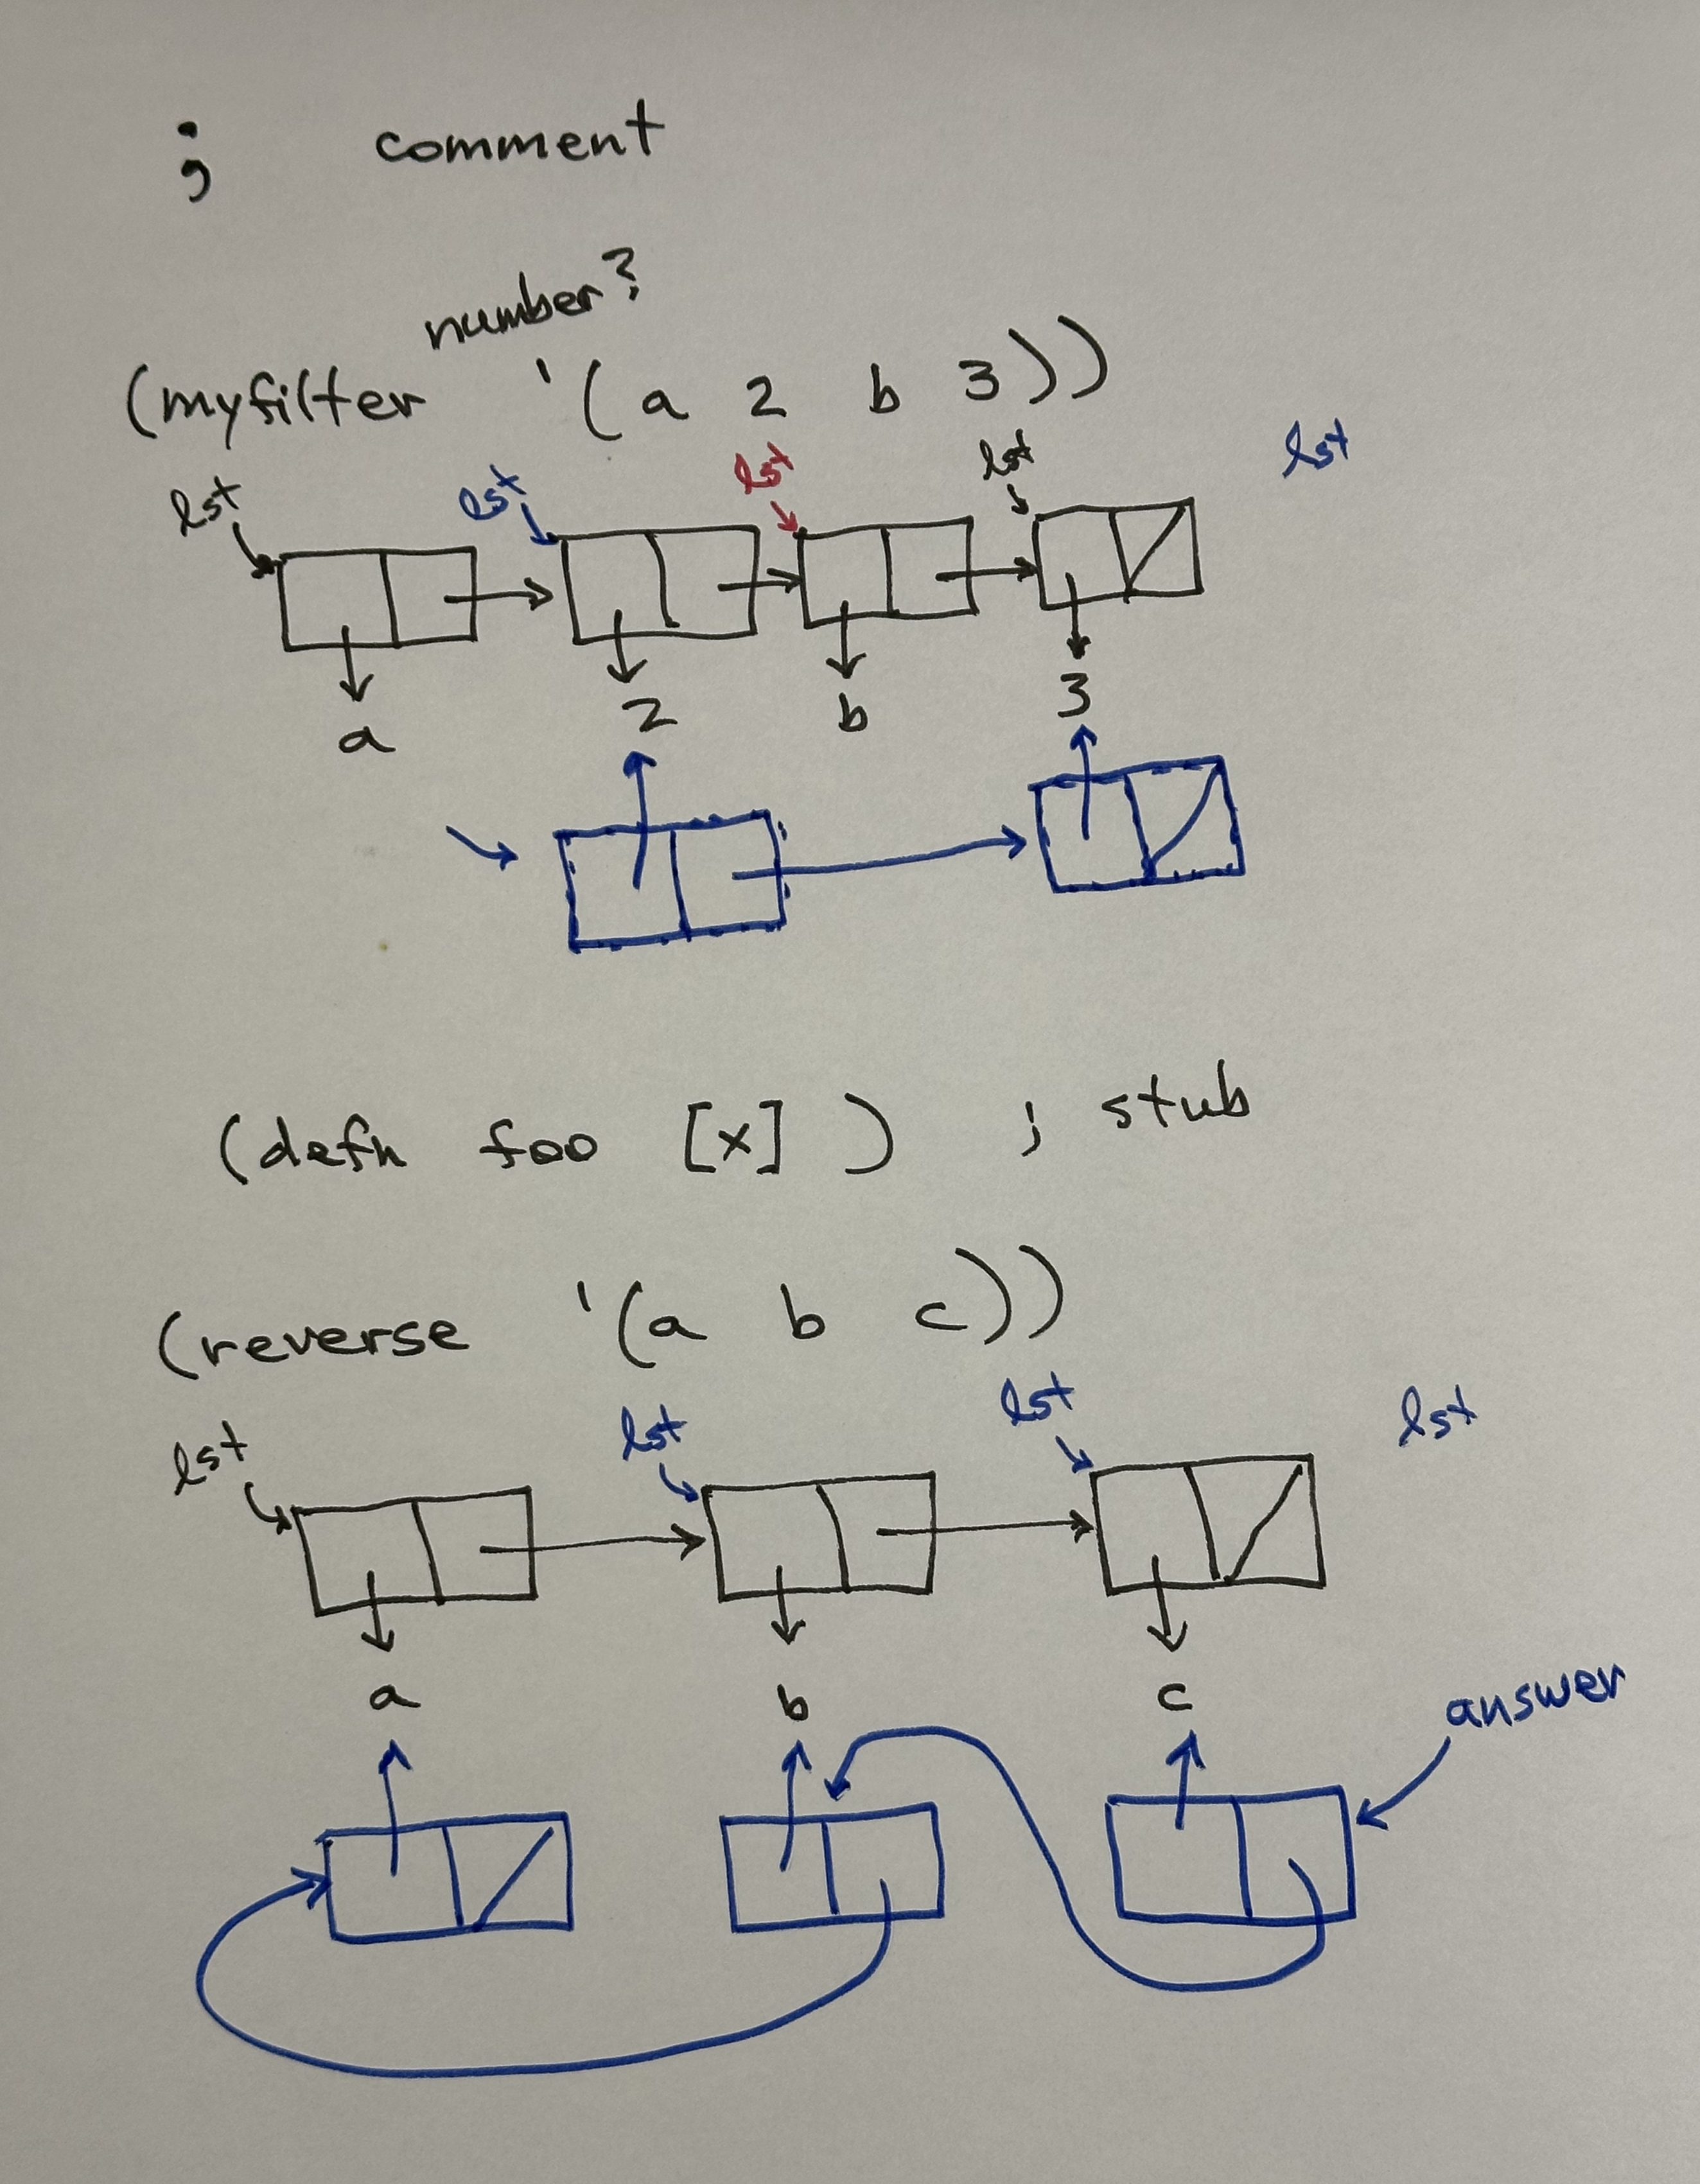 ; comment
number?
(myfilter '(a 2 b 3))
lst lst lst lst lst
a 2 b 3
(defn foo [x] ) ; stub
(reverse '(a b c))
lst lst lst lst
a b c
answer